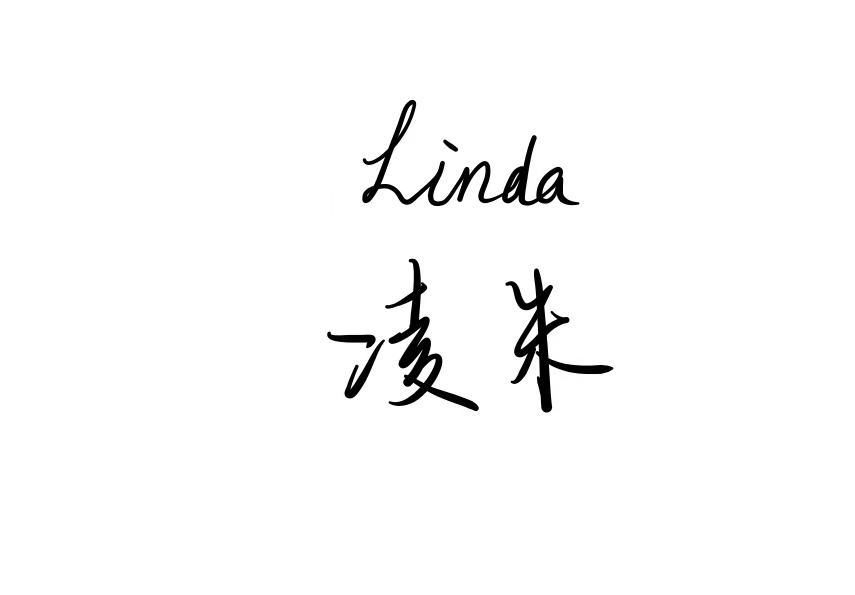 Linda
凌朱